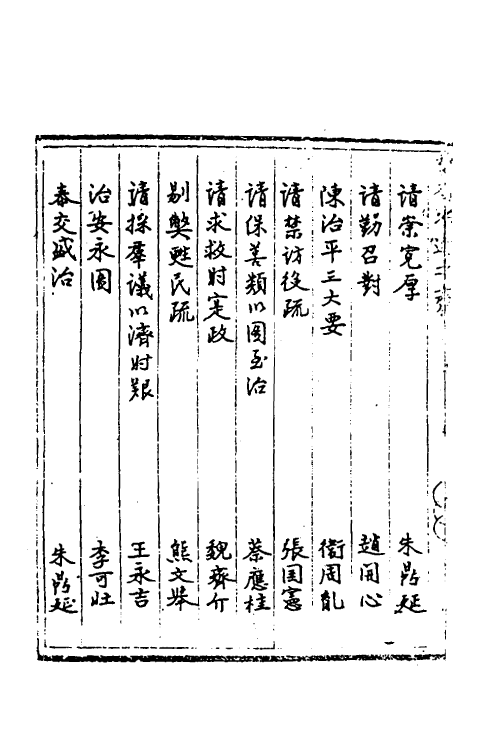 请崇宽厚 朱鼎延
请勤召對 趙開心
陳治平三大要 衛周胤
请禁访役疏 張国憲
请保善類以圖至治 蔡應桂
请求救时定政 魏齊介
剔弊甦民疏 熊文举
请採羣議以濟时艱 王永吉
治安永圖 李可壯
泰交盛治 朱鼎延